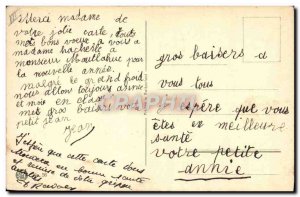 Merci madame de
votre jolie carte, tout
mes bons voeux a vous a
madame hachette a
monsieur Maillahue par
la nouvelle année.
malgré le grand froid
nous allon toujours
et moi en classe
mes gros baisers
petit jean
Jean
J'espère que cette carte vous
en bonne santé
et
gros baisers a
vous tous
J'espère que vous
êtes en meilleure
santé
votre petite
annie